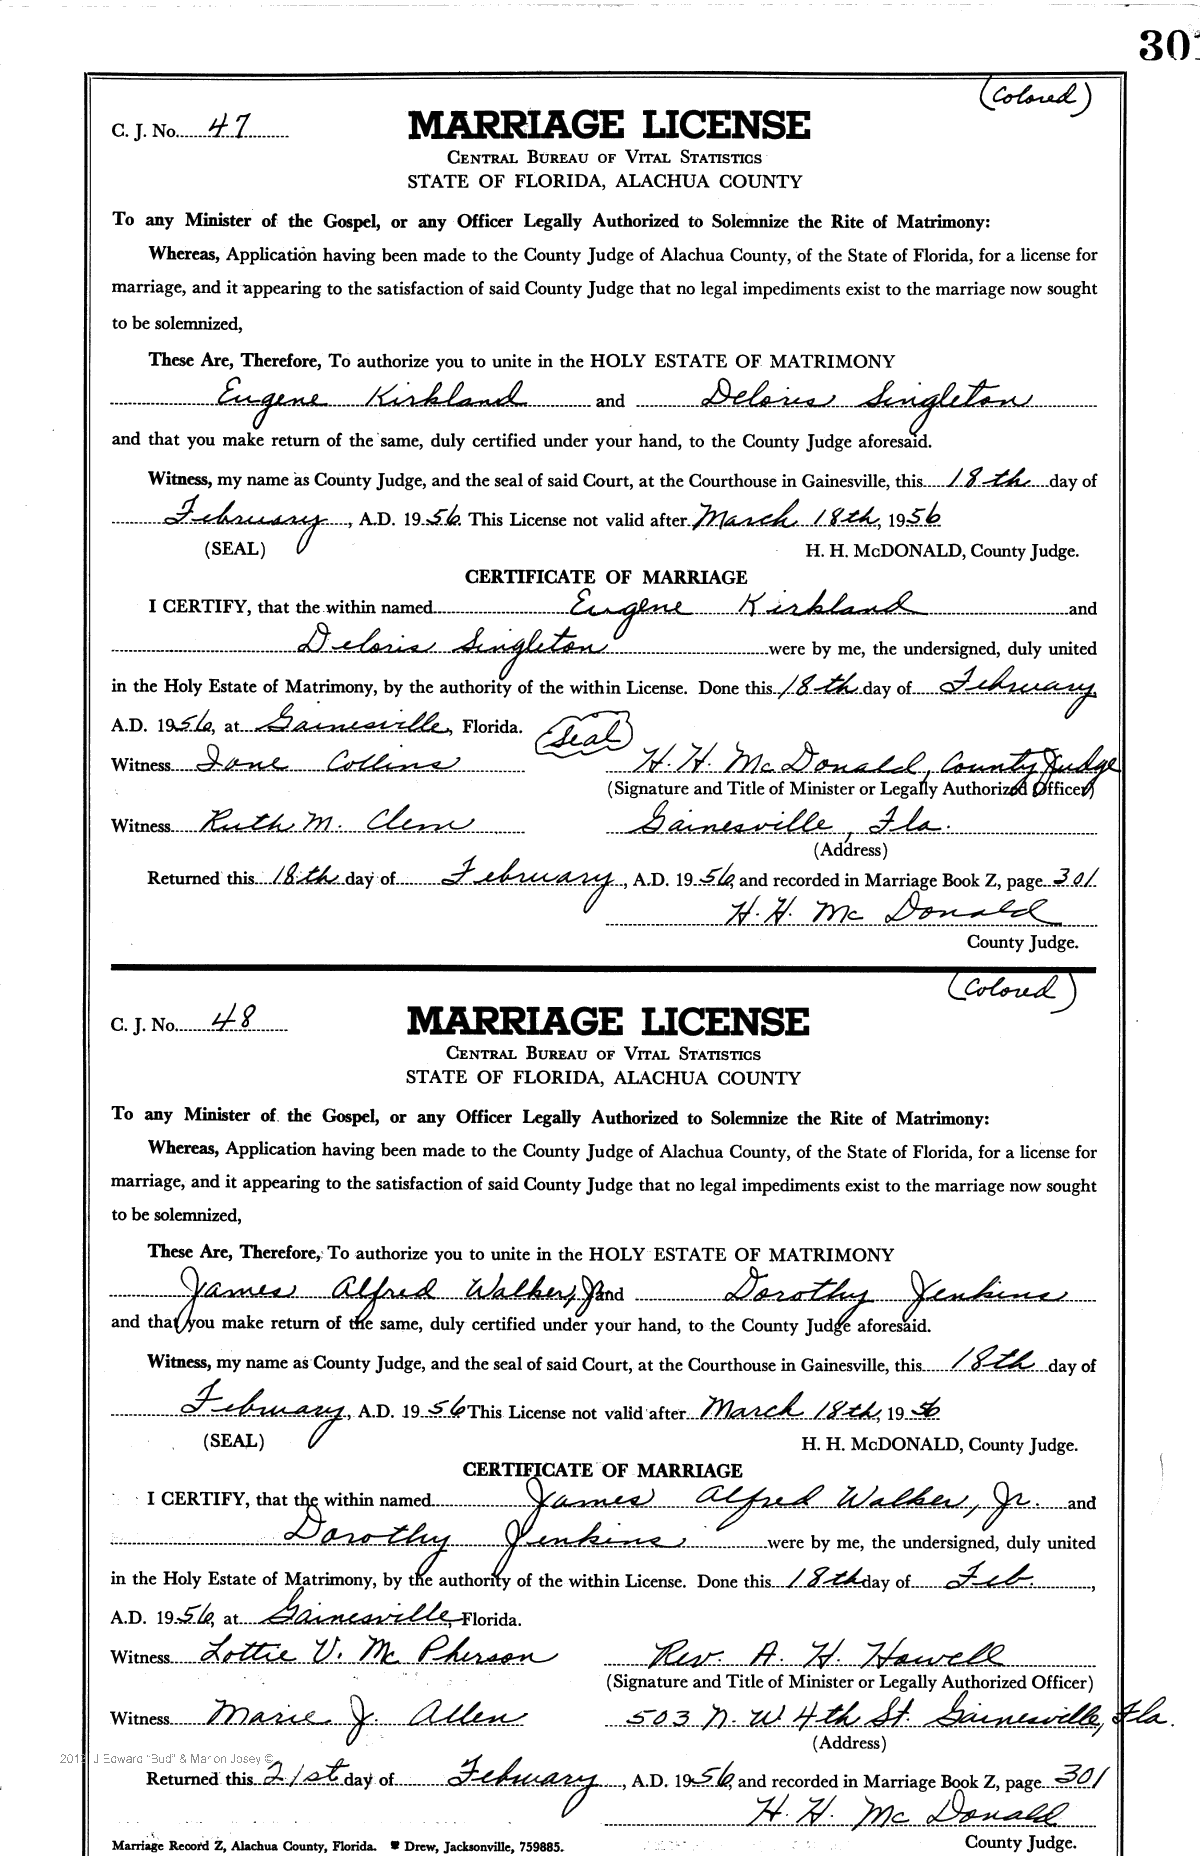 301
(Colored)
C. J. No. 47
MARRIAGE LICENSE
CENTRAL BUREAU OF VITAL STATISTICS
STATE OF FLORIDA, ALACHUA COUNTY
To any Minister of the Gospel, or any Officer Legally Authorized to Solemnize the Rite of Matrimony:
Whereas, Application having been made to the County Judge of Alachua County, of the State of Florida, for a license for
marriage, and it appearing to the satisfaction of said County Judge that no legal impediments exist to the marriage now sought
to be solemnized,
These Are, Therefore, To authorize you to unite in the HOLY ESTATE OF MATRIMONY
Eugene Kirkland and Deloris Singleton
and that you make return of the same, duly certified under your hand, to the County Judge aforesaid.
Witness, my name as County Judge, and the seal of said Court, at the Courthouse in Gainesville, this 18th day of
February, A.D. 1956. This License not valid after March 18th, 1956
(SEAL) H. H. McDONALD, County Judge.
CERTIFICATE OF MARRIAGE
I CERTIFY, that the within named Eugene Kirkland and
Deloris Singleton were by me, the undersigned, duly united
in the Holy Estate of Matrimony, by the authority of the within License. Done this 18th day of February,
A.D. 1956, at Gainesville, Florida. (Seal)
Witness Ione Collins H. H. McDonald, County Judge
(Signature and Title of Minister or Legally Authorized Officer)
Witness Ruth M. Clem Gainesville, Fla.
(Address)
Returned this 18th day of February, A.D. 1956, and recorded in Marriage Book Z, page 301
H. H. McDonald
County Judge.
(Colored)
C. J. No. 48
MARRIAGE LICENSE
CENTRAL BUREAU OF VITAL STATISTICS
STATE OF FLORIDA, ALACHUA COUNTY
To any Minister of the Gospel, or any Officer Legally Authorized to Solemnize the Rite of Matrimony:
Whereas, Application having been made to the County Judge of Alachua County, of the State of Florida, for a license for
marriage, and it appearing to the satisfaction of said County Judge that no legal impediments exist to the marriage now sought
to be solemnized,
These Are, Therefore, To authorize you to unite in the HOLY ESTATE OF MATRIMONY
James Alfred Walker, Jr. and Dorothy Jenkins
and that you make return of the same, duly certified under your hand, to the County Judge aforesaid.
Witness, my name as County Judge, and the seal of said Court, at the Courthouse in Gainesville, this 18th day of
February, A.D. 1956 This License not valid after March 18th, 1956
(SEAL) H. H. McDONALD, County Judge.
CERTIFICATE OF MARRIAGE
I CERTIFY, that the within named James Alfred Walker, Jr. and
Dorothy Jenkins were by me, the undersigned, duly united
in the Holy Estate of Matrimony, by the authority of the within License. Done this 18th day of Feb.,
A.D. 1956, at Gainesville, Florida.
Witness Lottie V. McPherson Rev. A. H. Howell
(Signature and Title of Minister or Legally Authorized Officer)
Witness Marie J. Allen 503 N. W 4th St. Gainesville, Fla.
(Address)
J Edward "Bud" & Marion Josey ©
Returned this 21st day of February, A.D. 1956, and recorded in Marriage Book Z, page 301
H. H. McDonald
County Judge.
Marriage Record Z, Alachua County, Florida. Drew, Jacksonville, 759885.